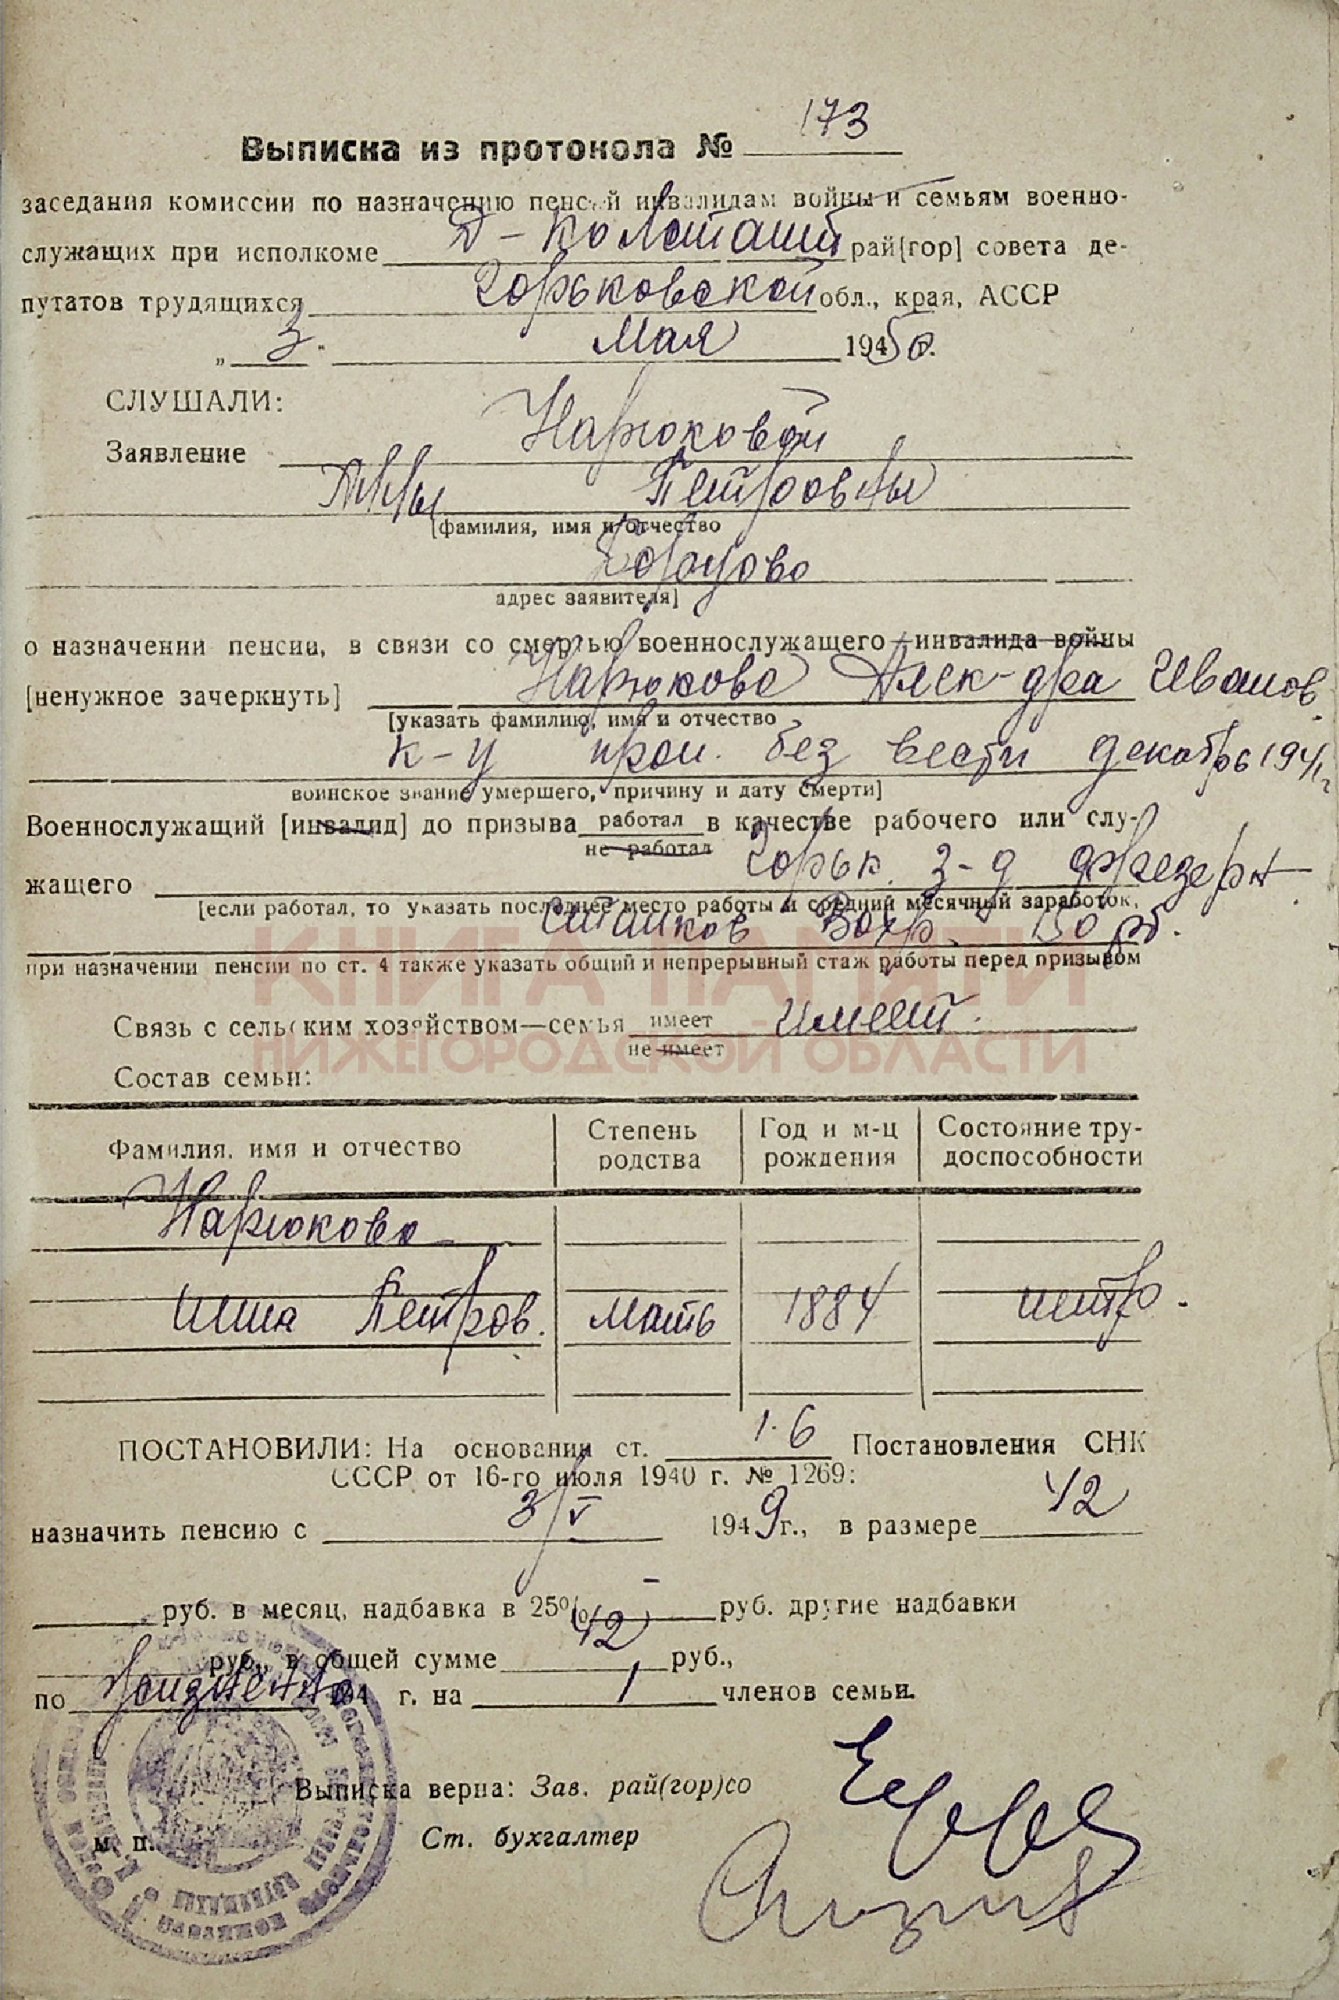 Выписка из протокола № 173
заседания комиссии по назначению пенсий инвалидам войны и семьям военно-
служащих при исполкоме Д-Констант рай[гор] совета де-
путатов трудящихся Горьковской обл., края, АССР
„ 3 " Мая 1950.
СЛУШАЛИ:
Заявление Нарюковой
Анны Петровны
[фамилия, имя и отчество
адрес заявителя]
о назначении пенсии, в связи со смертью военнослужащего—инвалида войны
[ненужное зачеркнуть] Нарюкова Алек-дра Иванов.
[указать фамилию, имя и отчество
к-ц проп. без вести декабрь 1941 г
воинское звание умершего, причину и дату смерти]
Военнослужащий [инвалид] до призыва работал в качестве рабочего или слу-
не работал
жащего Горьк. з-д фрезерн
[если работал, то указать последнее место работы и средний месячный заработок,
станков 150 рб.
при назначении пенсии по ст. 4 также указать общий и непрерывный стаж работы перед призывом
КНИГА ПАМЯТИ
Связь с сельским хозяйством—семья имеет имеет.
не имеет
НИЖЕГОРОДСКОЙ ОБЛАСТИ
Состав семьи:
Фамилия, имя и отчество Степень родства Год и м-ц рождения Состояние тру-доспособности
Нарюкова
Анна Петров. мать 1884 нетр.
ПОСТАНОВИЛИ: На основании ст. 1.6 Постановления СНК
СССР от 16-го июля 1940 г. № 1269:
назначить пенсию с 3/V 1949 г., в размере 42
руб. в месяц, надбавка в 25% – руб. другие надбавки
руб., в общей сумме 42 руб.,
по пожизненно 194 г. на 1 членов семьи.
Выписка верна: Зав. рай(гор)со
м. п. Ст. бухгалтер